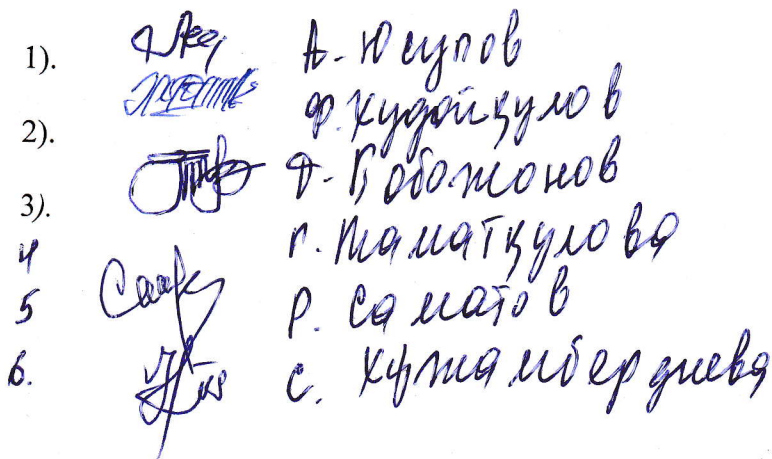 1). А. Юсупов
2). Ф. Худойқулов
3). Д. Бобожонов
4 Г. Маматқулова
5 Р. Саматов
6. С. Хўжамбердиева